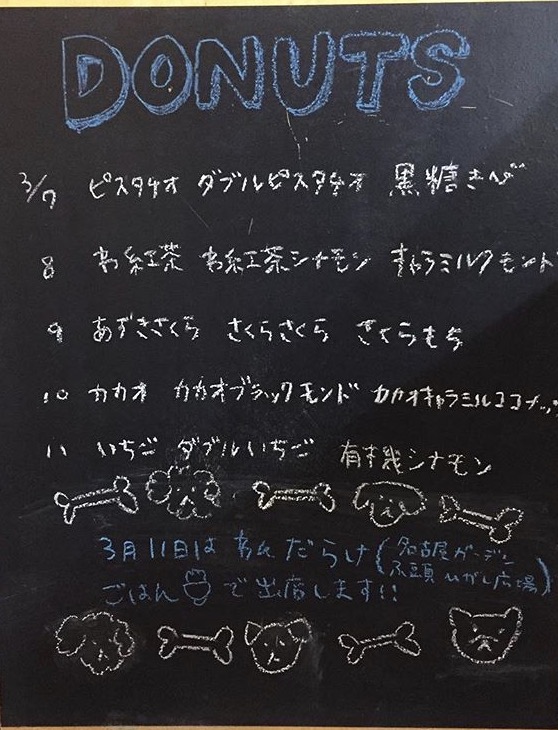 DONUTS
3/7 ピスタチオ ダブルピスタチオ 黒糖きび
8 和紅茶 和紅茶シナモン キャラミルクモンド
9 あずきさくら さくらさくら さくらもち
10 カカオ カカオブラックモンド カカオキャラミルココナッツ
11 いちご ダブルいちご 有機シナモン
3月11日は わんだらけ(名古屋ガーデン
ふ頭 ひがし広場)
ごはん で出店します!!